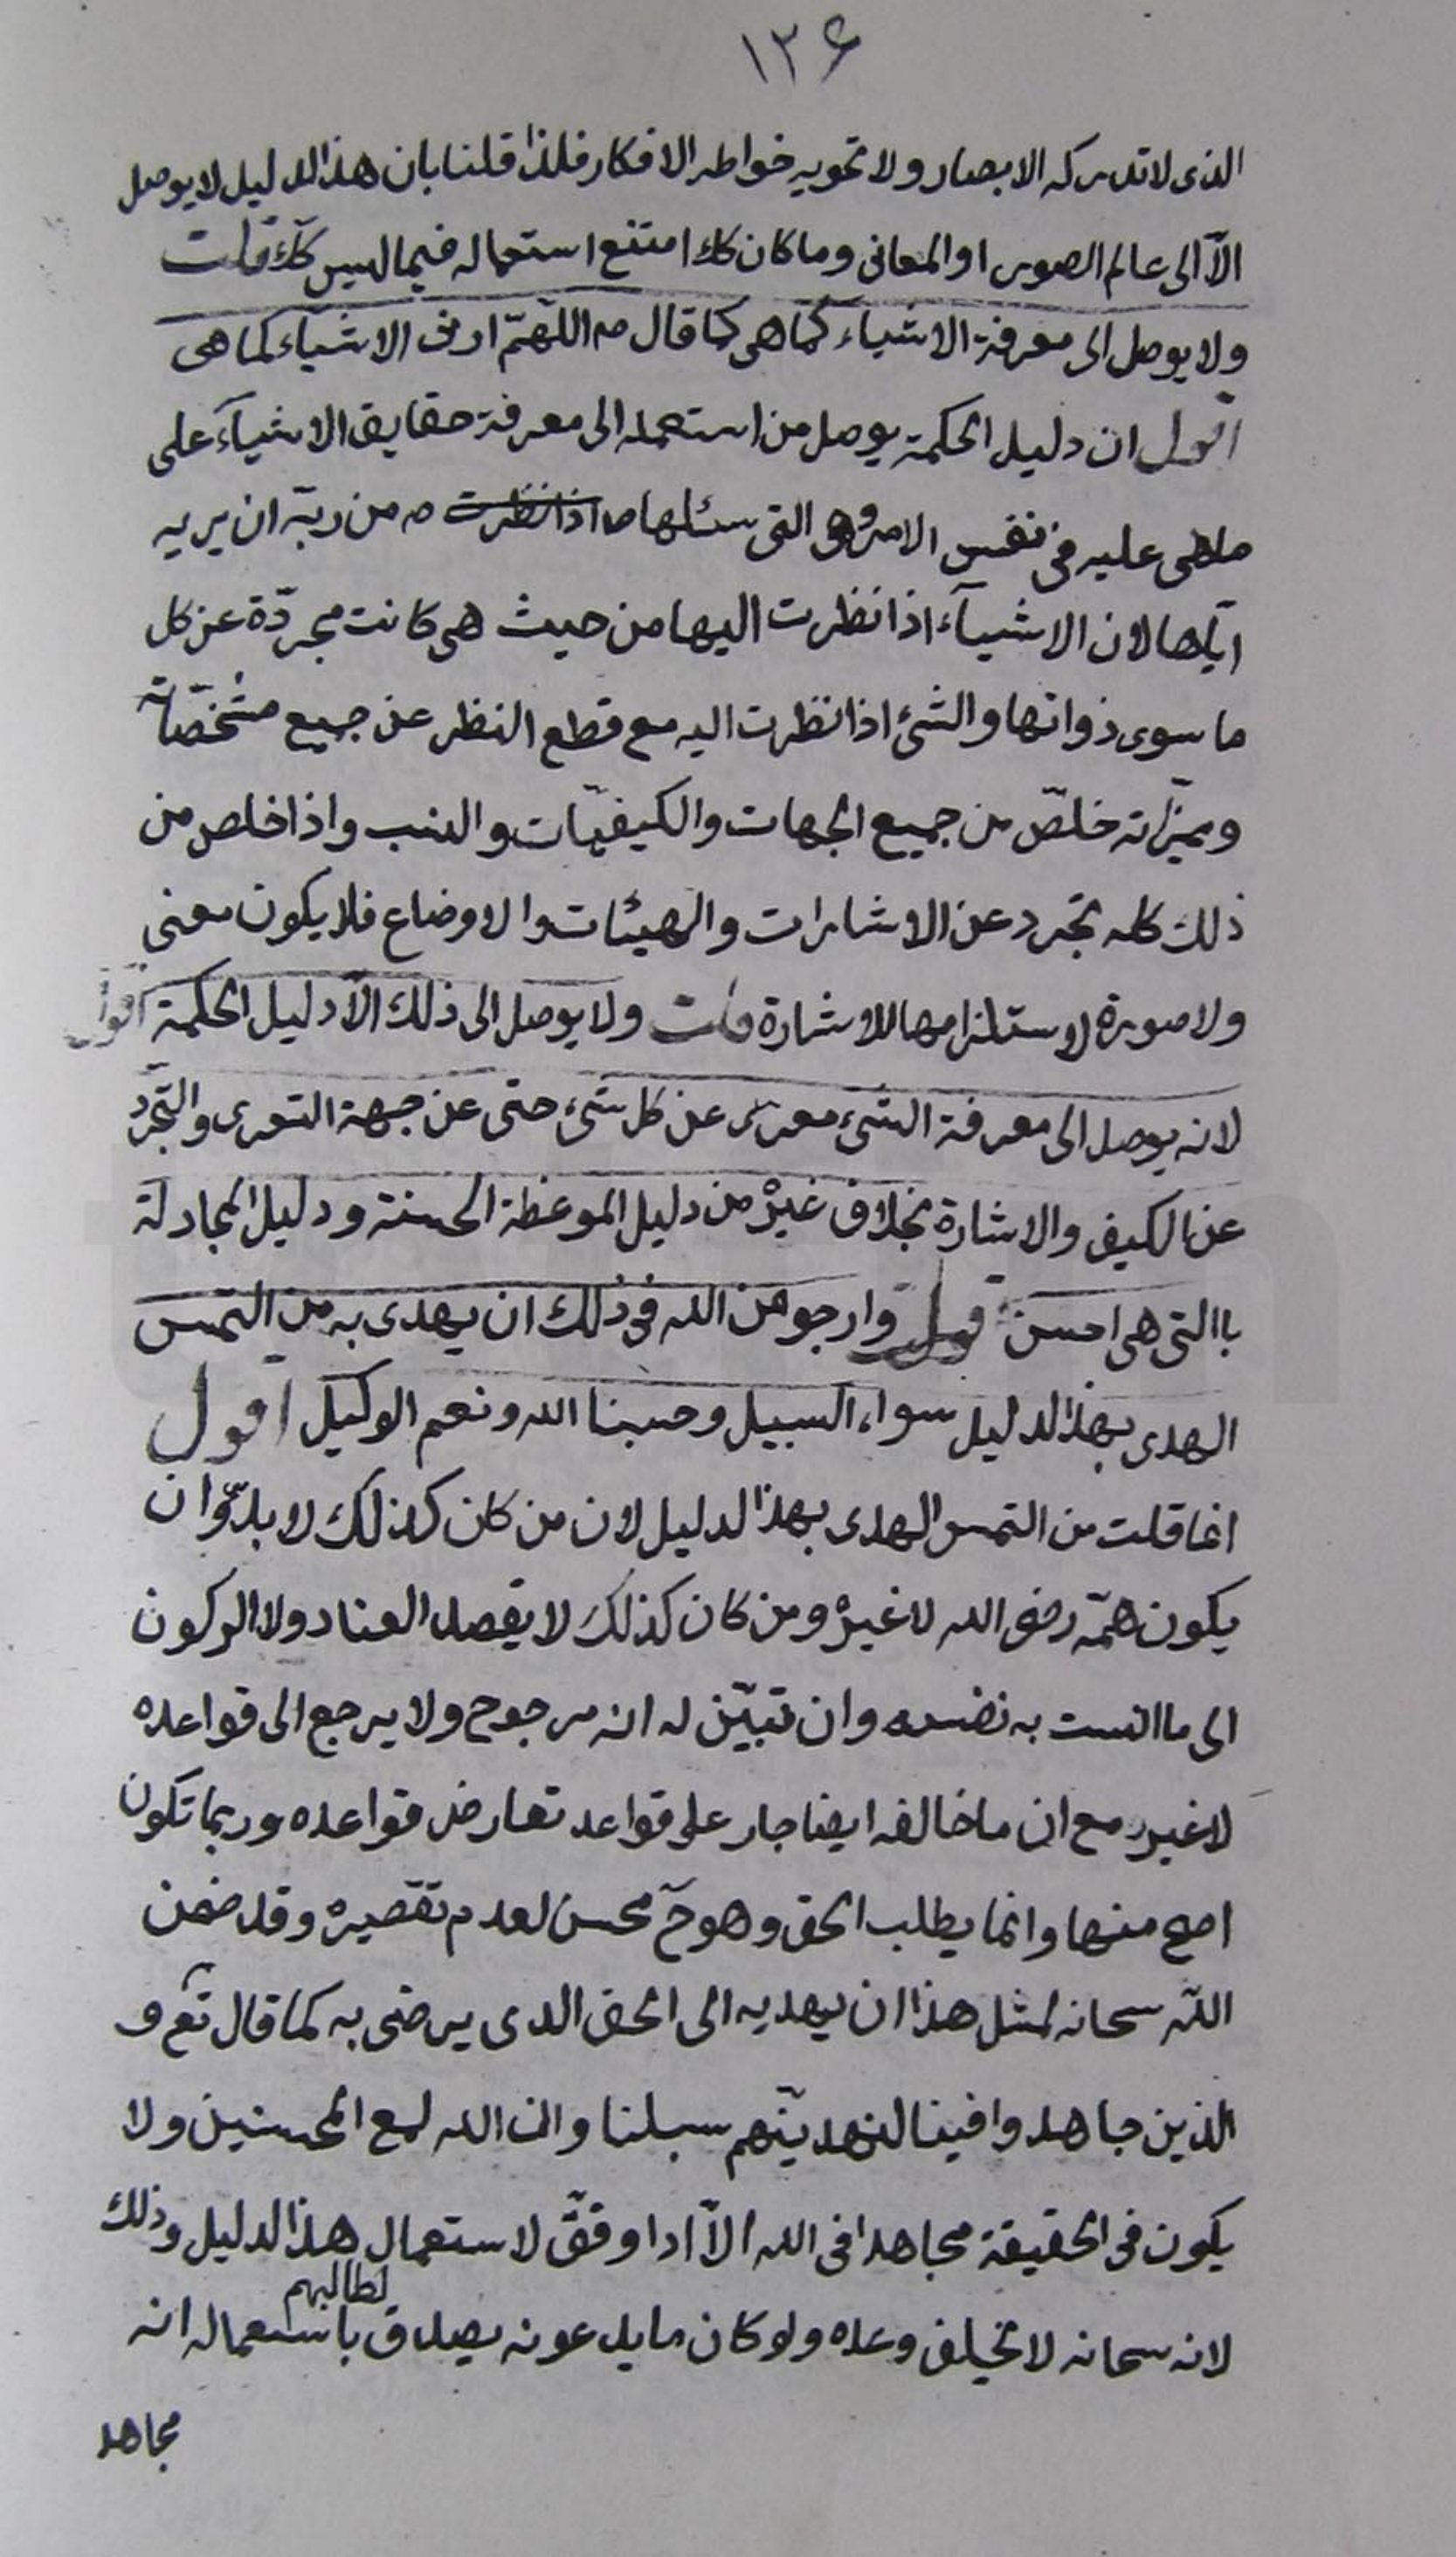 ١٢۶
الذى لا تدركه الابصار ولا تحويه خواطر الافكار فلذا قلنا بان هذا الدليل لا يوصل
الّا الى عالم الصور او المعانى وما كان كك امتنع استعماله فيما ليس كك قلت
ولا يوصل الى معرفة الاشياء كما هى كما قال ص اللّهمّ ارنى الاشياء كما هى
اقول ان دليل الحكمة يوصل من استعمله الى معرفة حقايق الاشيآء على
ما هى عليه فى نفس الامر وهى التى سئلها ص اذا نظرت ص من ربّه ان يريه
ايّاها لان الاشيآء اذا نظرت اليها من حيث هى كانت مجرّدة عن كل
ما سوى ذواتها والشئ اذا نظرت اليه مع قطع النظر عن جميع مشخّصاته
ومميّزاته خلّص من جميع الجهات والكيفيّات والنسب واذا خلص من
ذلك كله تجرد عن الاشارات والهيئات والاوضاع فلا يكون معنى
ولا صورة لاستلزامها للاشارة قلت ولا يوصل الى ذلك الّا دليل الحكمة اقول
لانه يوصل الى معرفة الشئ معرى عن كل شئ حتى عن جهة التعرى والتجرّد
عن الكيف والاشارة بخلاف غيره من دليل الموعظة الحسنة ودليل المجادلة
باالتى هى احسن وارجو من الله فى ذلك ان يهدى به من التمس
الهدى بهذا الدليل سواء السبيل وحسبنا الله ونعم الوكيل اقول
انما قلت من التمس الهدى بهذا الدليل لان من كان كذلك لا بدّ وان
يكون همّه رضى الله لا غيره ومن كان كذلك لا يقصد العناد ولا الركون
الى ما انست به نفسه وان تبيّن له انه مرجوح ولا يرجع الى قواعده
لا غير مع ان ما خالفه ايضا جار على قواعد تعارض قواعده وربما تكون
اصح منها وانما يطلب الحق وهو حٓ محسن لعدم تقصيره وقد ضمن
اللّه سبحانه لمثل هذا ان يهديه الى الحق الذى يرضى به كما قال تع و
الذين جاهدوا فينا لنهدينّهم سبلنا وان الله لمع المحسنين ولا
يكون فى الحقيقة مجاهدا فى الله الّا اذا وفّق لاستعمال هذا الدليل وذلك
لانه سبحانه لا يخلف وعده ولو كان ما يدعونه يصدق باستعماله انه
لطالبهم
مجاهد